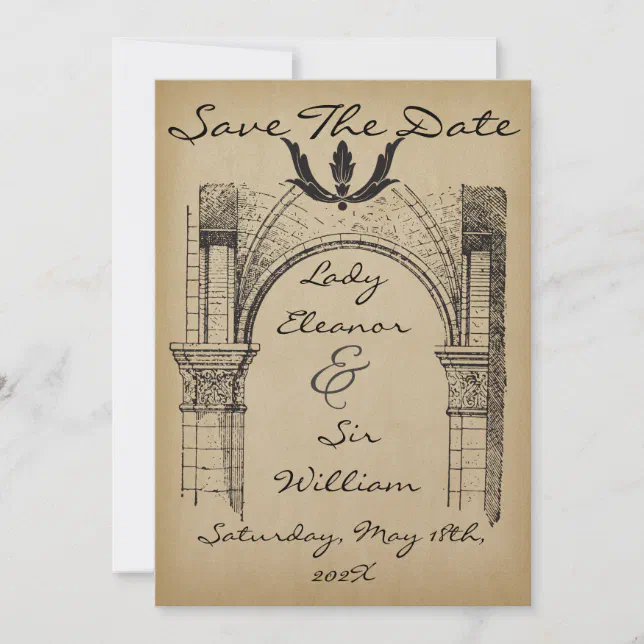 Save The Date
Lady
Eleanor
&
Sir
William
Saturday, May 18th,
202X